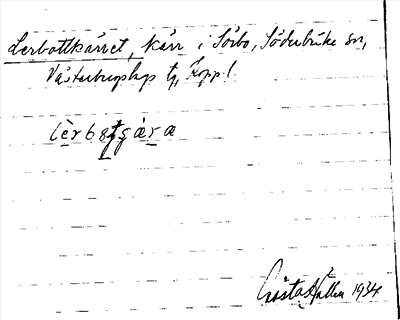 Lerbottkärret, kärr i Sörbo, Söderbärke sn,
Västerbergslags tg, Kopp. l.
Gösta 1934